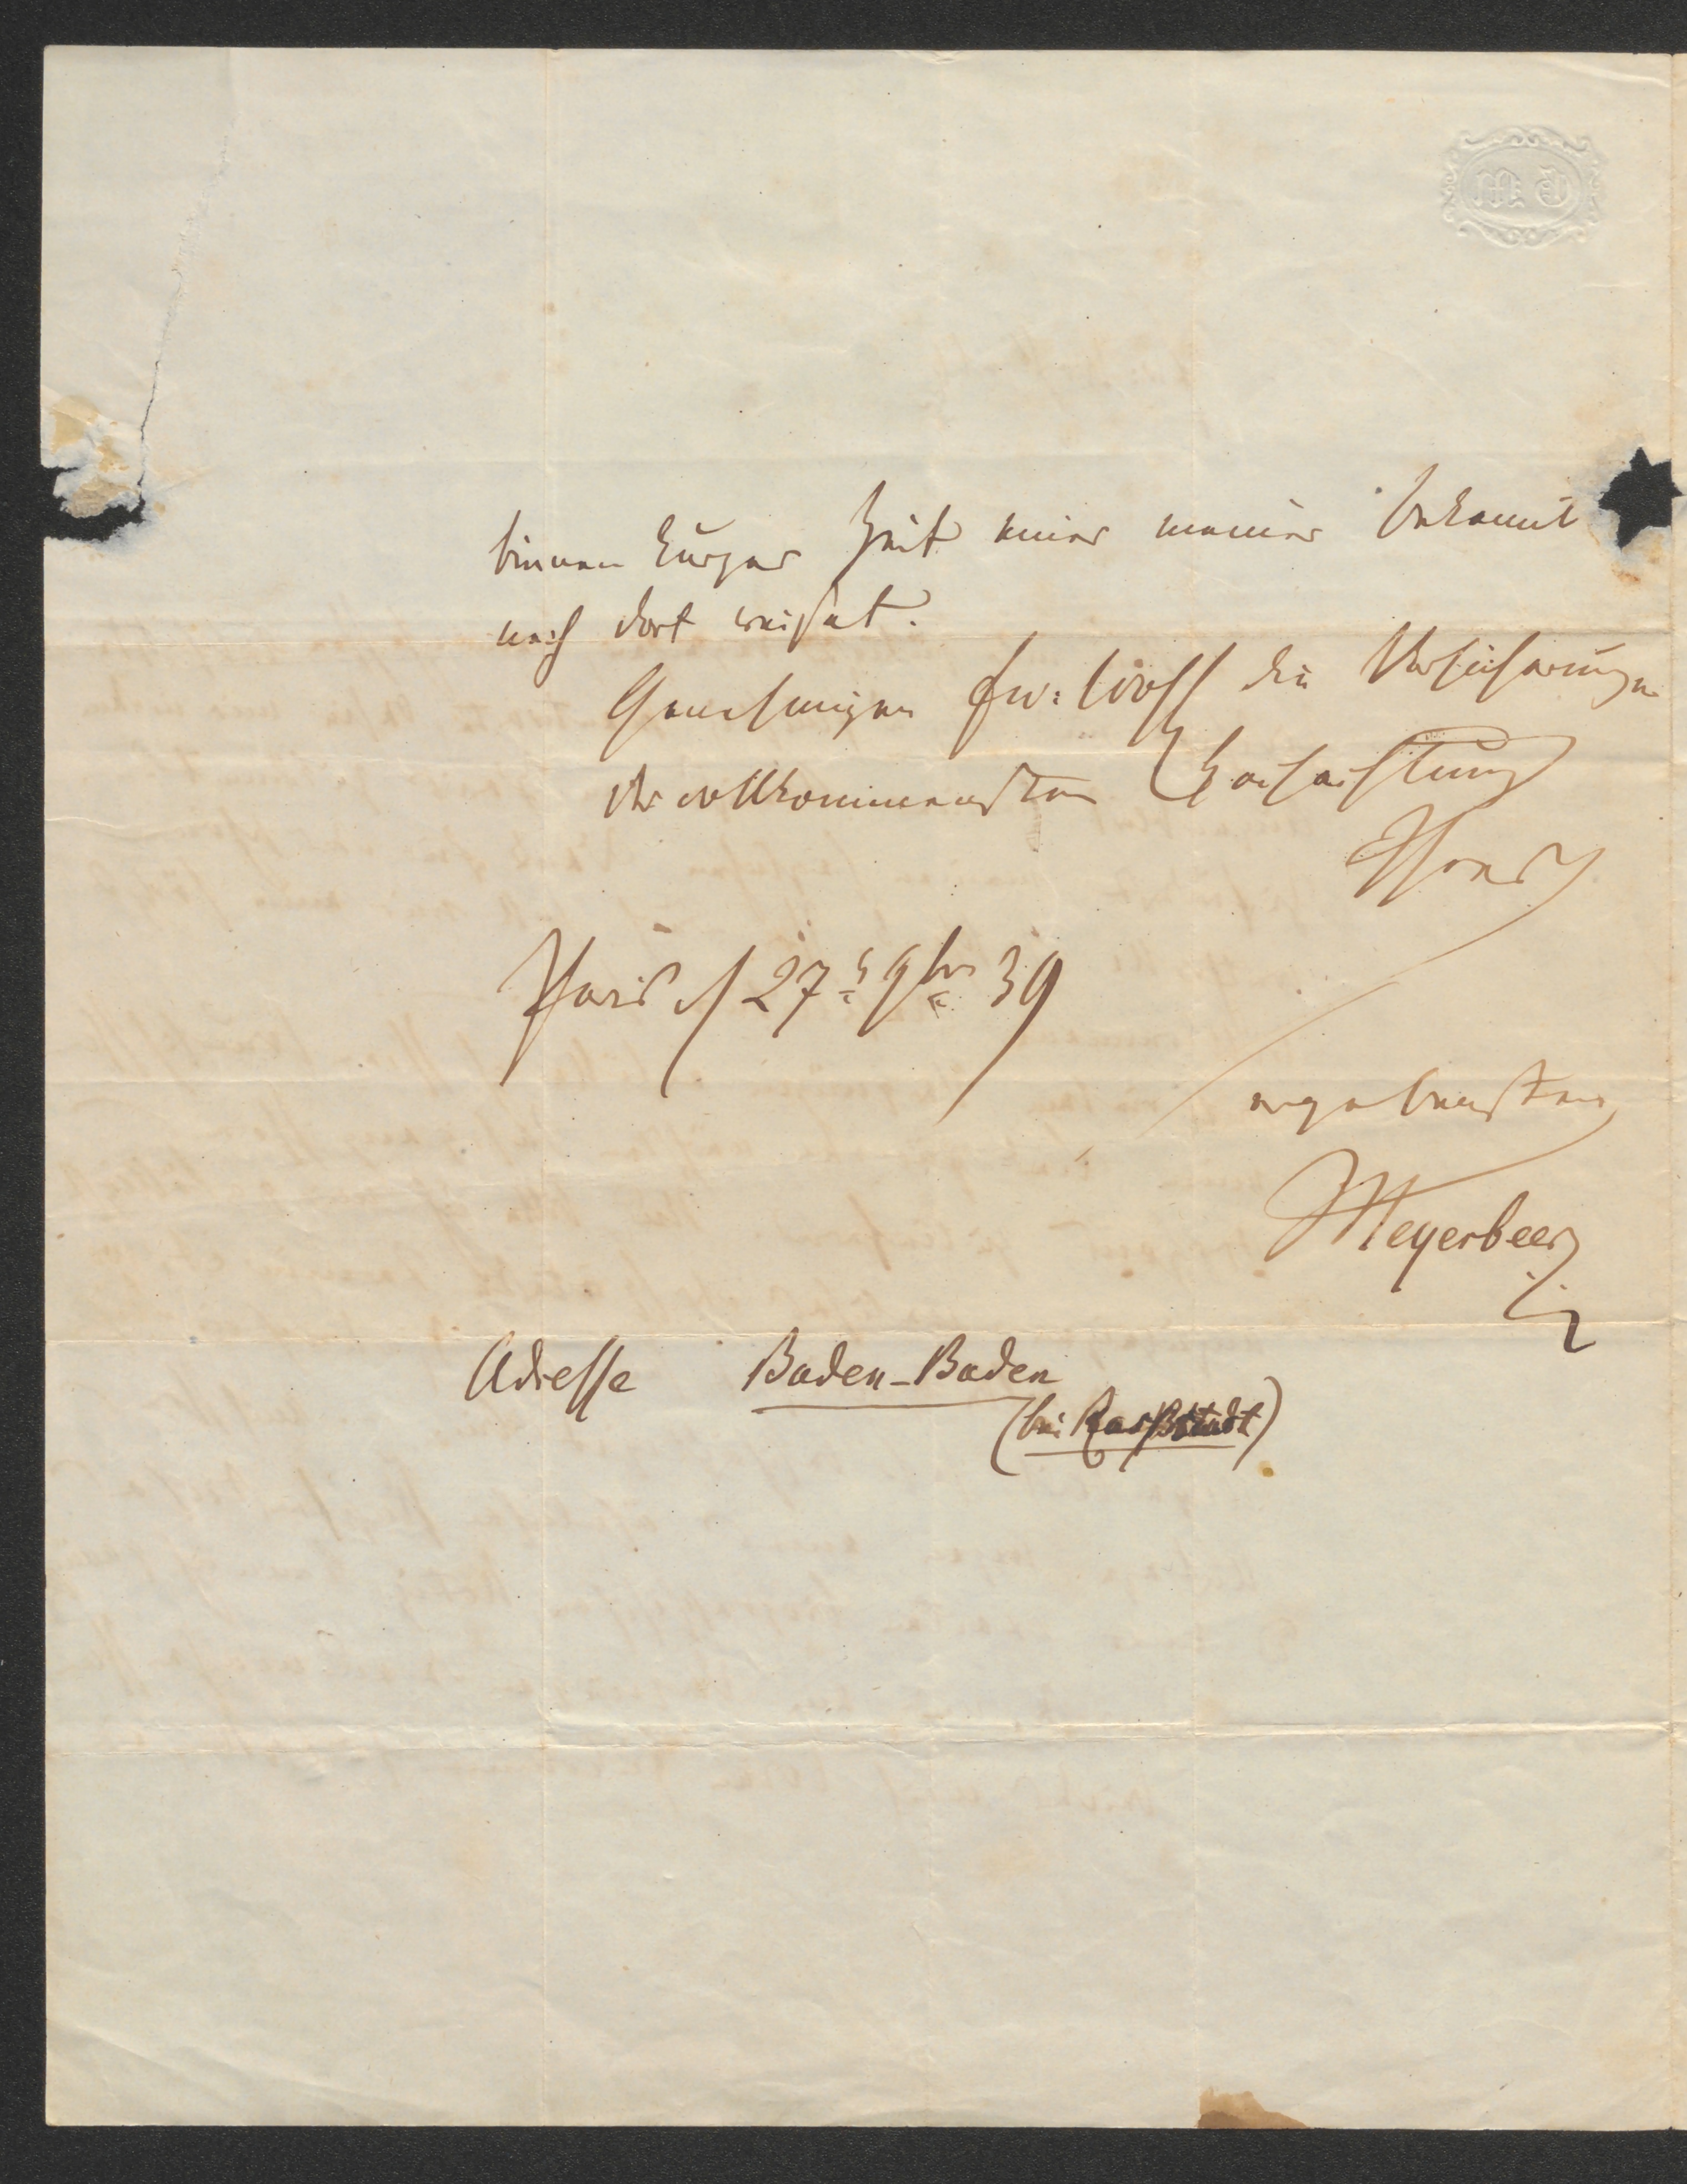 G M
binnen kurzer Zeit einer meiner bekannt
nach dort reiset.
Genehmigen Ew: Wohl die Versicherungen
der vollkommensten Hochachtung
Ihres
Paris d 27t 9br 39
ergebensten
Meyerbeer
Adresse Baden-Baden
(bei Rasstadt)